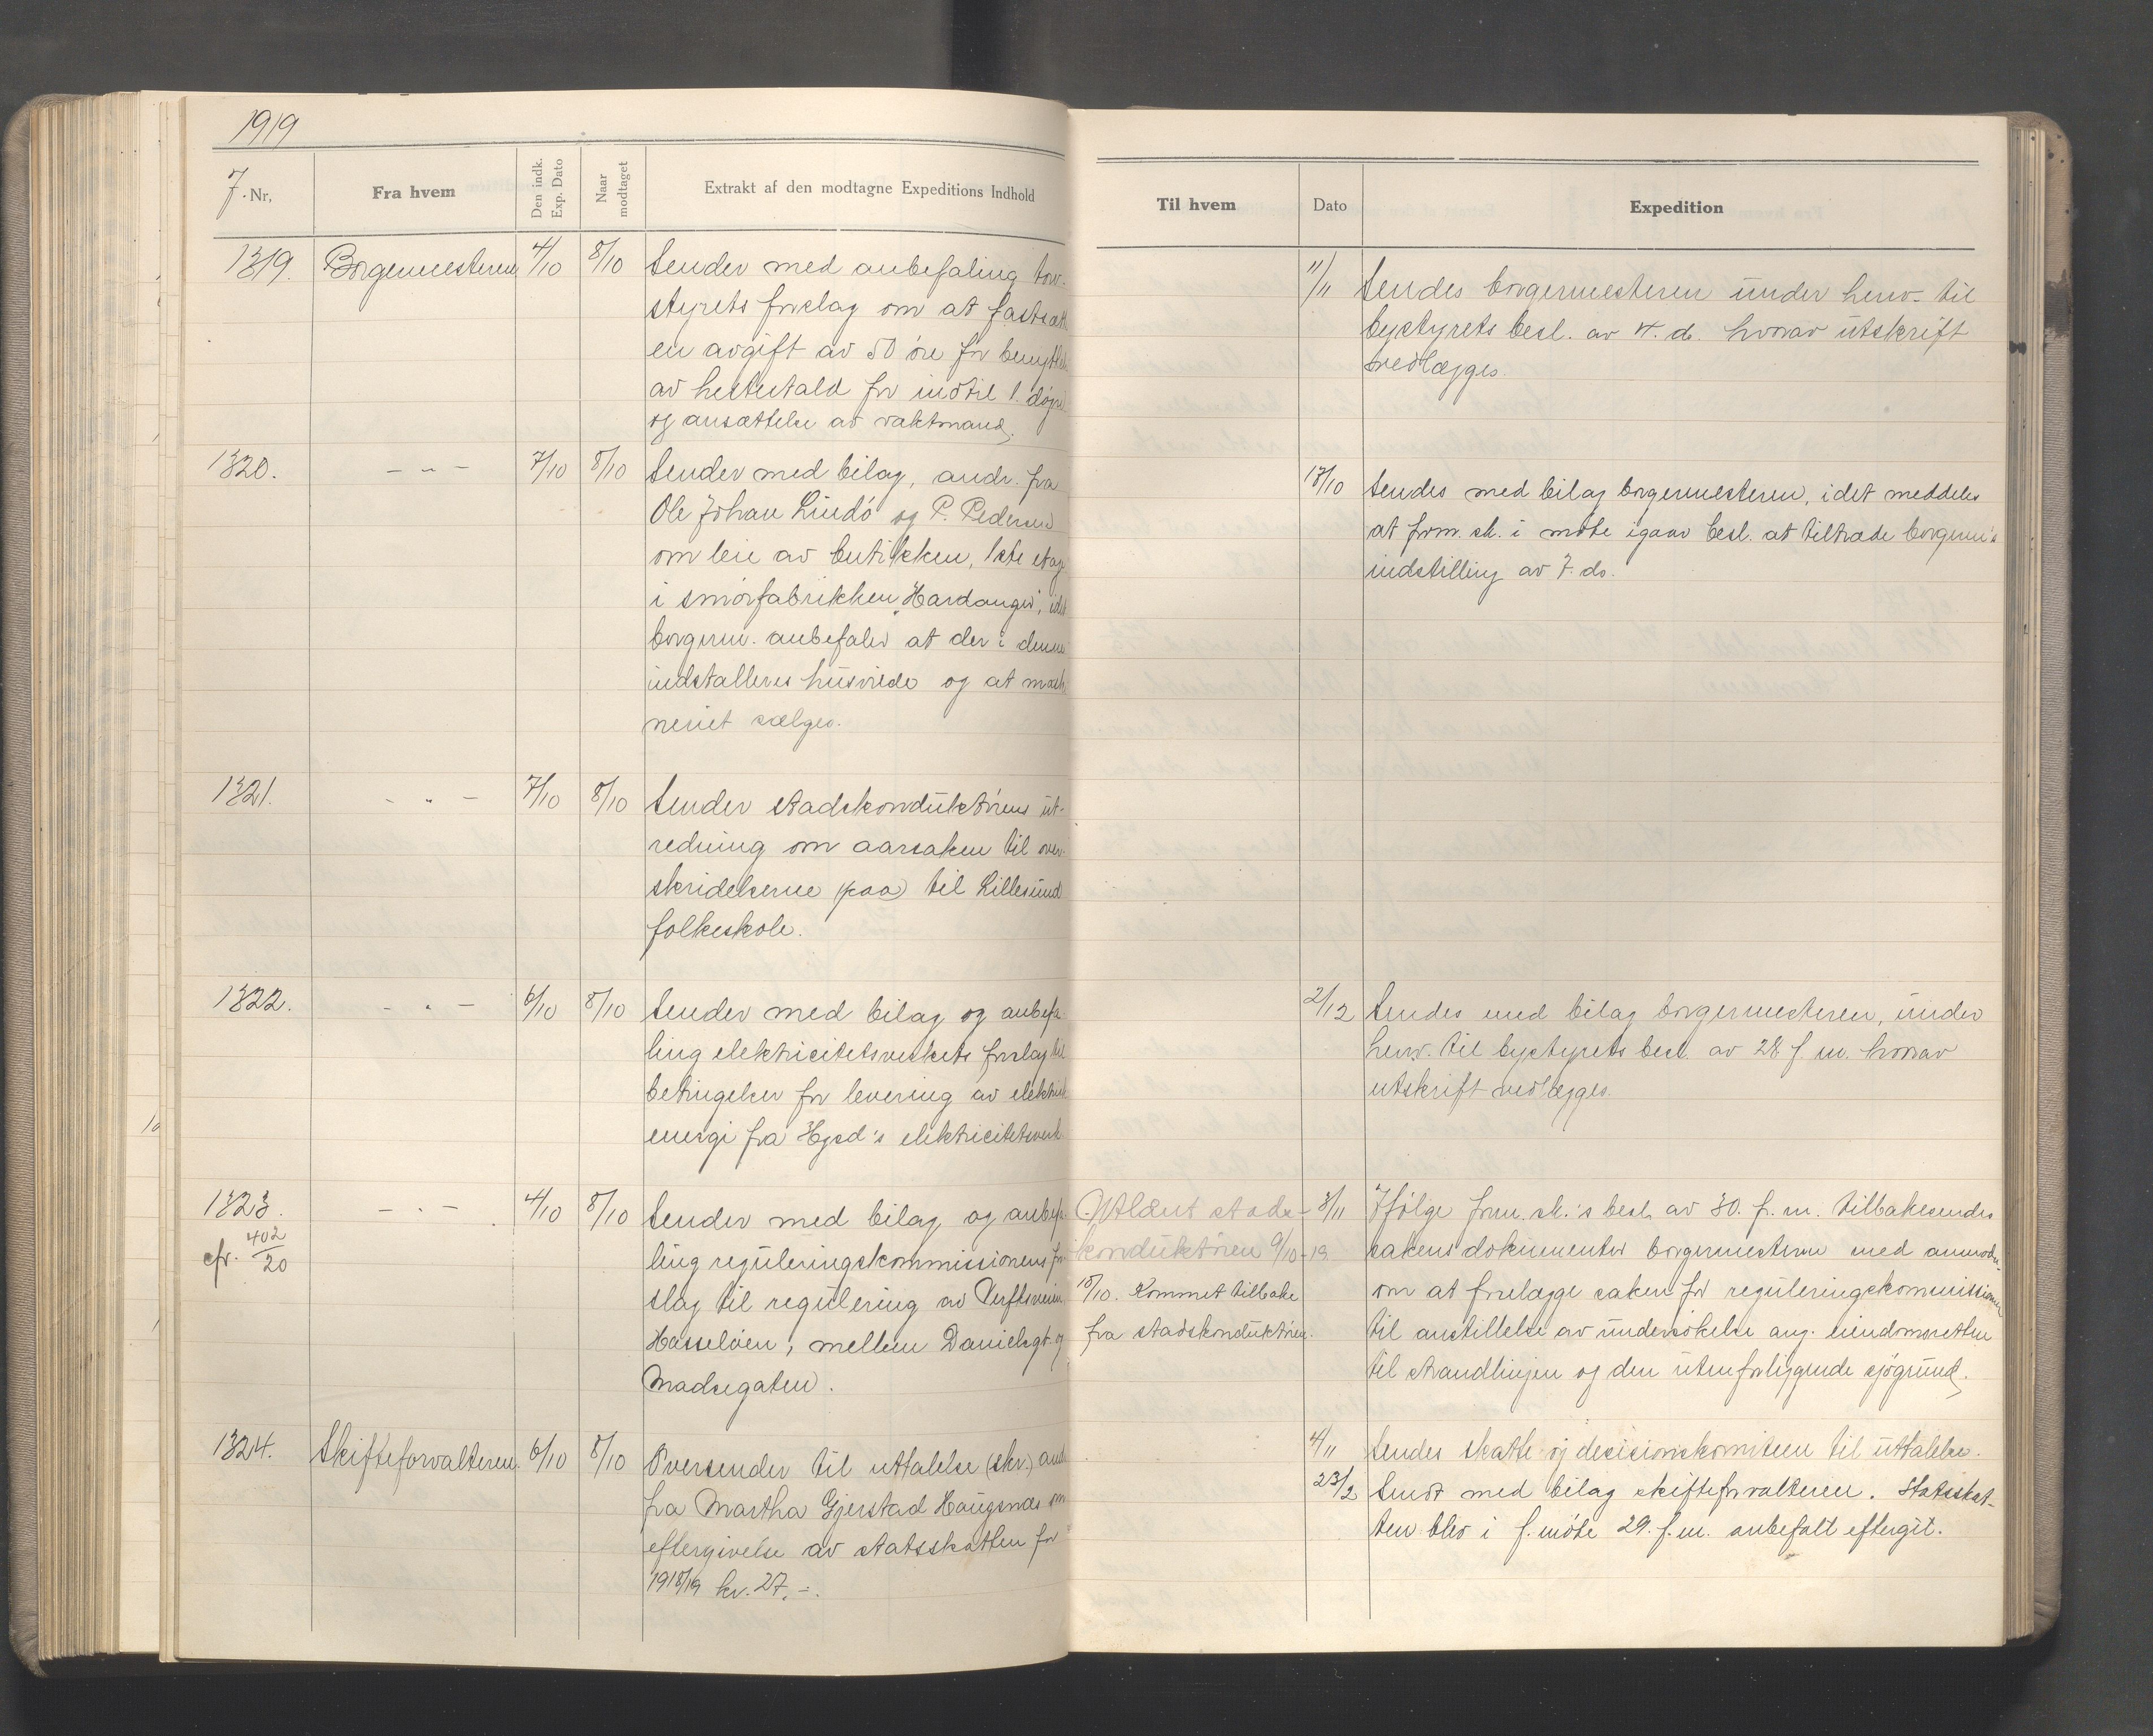 1919
J. Nr,
Fra hvem
Den indk. Exp. Dato
Naar modtaget
Extrakt af den modtagne Expeditions Indhold
Til hvem
Dato
Expedition
1319. Borgermesteren 4/10 8/10 Sender med anbefaling torv-
styrets forslag om at fastsætte
en avgift av 50 øre for benyttelse
av hestestald for indtil 1 døgn
og ansættelse av vaktmand.
11/11 Sendes borgermesteren under henv. til
bystyrets besl. av 4. ds. hvorav utskrift
vedlægges.
1320. - " - 7/10 8/10 Sender med bilag, andr. fra
Ole Johan Lindø og P. Pedersen
om leie av butikken, 1ste etage
i smørfabrikken "Hardanger", idet
borgerm. anbefaler at der i denne
indstalleres husvilde og at maski-
neriet sælges.
18/10 Sendes med bilag borgermesteren, idet meddeles
at form.sk. i møte igaar besl. at tiltræde borgerm's
indstilling av 7. ds.
1321. - " - 7/10 8/10 Sender stadskonduktørens ut-
redning om aarsaken til over-
skridelserne (paa) til Lillesund
folkeskole.
1322. - " - 6/10 8/10 Sender med bilag og anbefa-
ling elektricitetsverkets forslag til
betingelser for levering av elektrisk
energi fra Hgsd's elektricitetsverk.
2/12 Sendes med bilag borgermesteren, under
henv. til bystyrets besl. av 28 f. m. hvorav
utskrift vedlægges.
1323. - " - 4/10 8/10 Sender med bilag og anbefa-
cfr. 402/20
ling reguleringskommissionens for-
slag til regulering av Verftsveien,
Hasseløen, mellem Danielsgt. og
Madsegaten.
Utlånt stads-
konduktøren 9/10-19.
18/10. Kommet tilbake
fra stadskonduktøren.
3/11 Ifølge form.sk.'s besl. av 30. f. m. tilbakesendes
sakens dokumenter borgermesteren med anmodn.
om at forelægge saken for reguleringskommissionen
til anstillelse av undersøkelse ang. eiendomsretten
til strandlinjen og den utenforliggende sjøgrund.
1324. Skifteforvalteren. 6/10 8/10 Oversender til uttalelse (skr.) andr.
fra Martha Gjerstad Haugsnes om
eftergivelse av statsskatten for
1918/19 kr. 27.-.
4/11 Sendes skatte- og decisionskomiteen til uttalelse.
23/2 Sendt med bilag skifteforvalteren. Statsskat-
ten blev i f.møte 29. f.m. anbefalt eftergit.